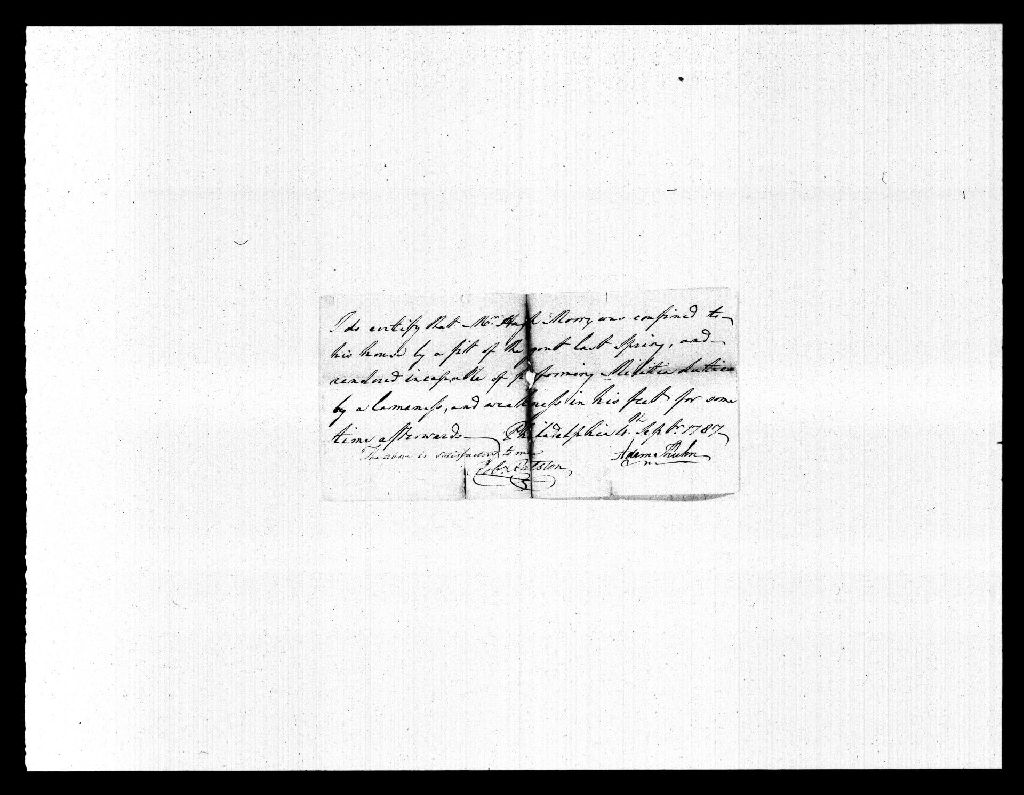 I do certify that Mr. Hugh Morry was confined to
his house by a fitt of the gout last Spring, and
rendered incapable of performing Militia duties
by a lameness, and weakness in his feet for some
time afterwards Philadelphia 4th. Septbr. 1787
The above is satisfactory to me Adam